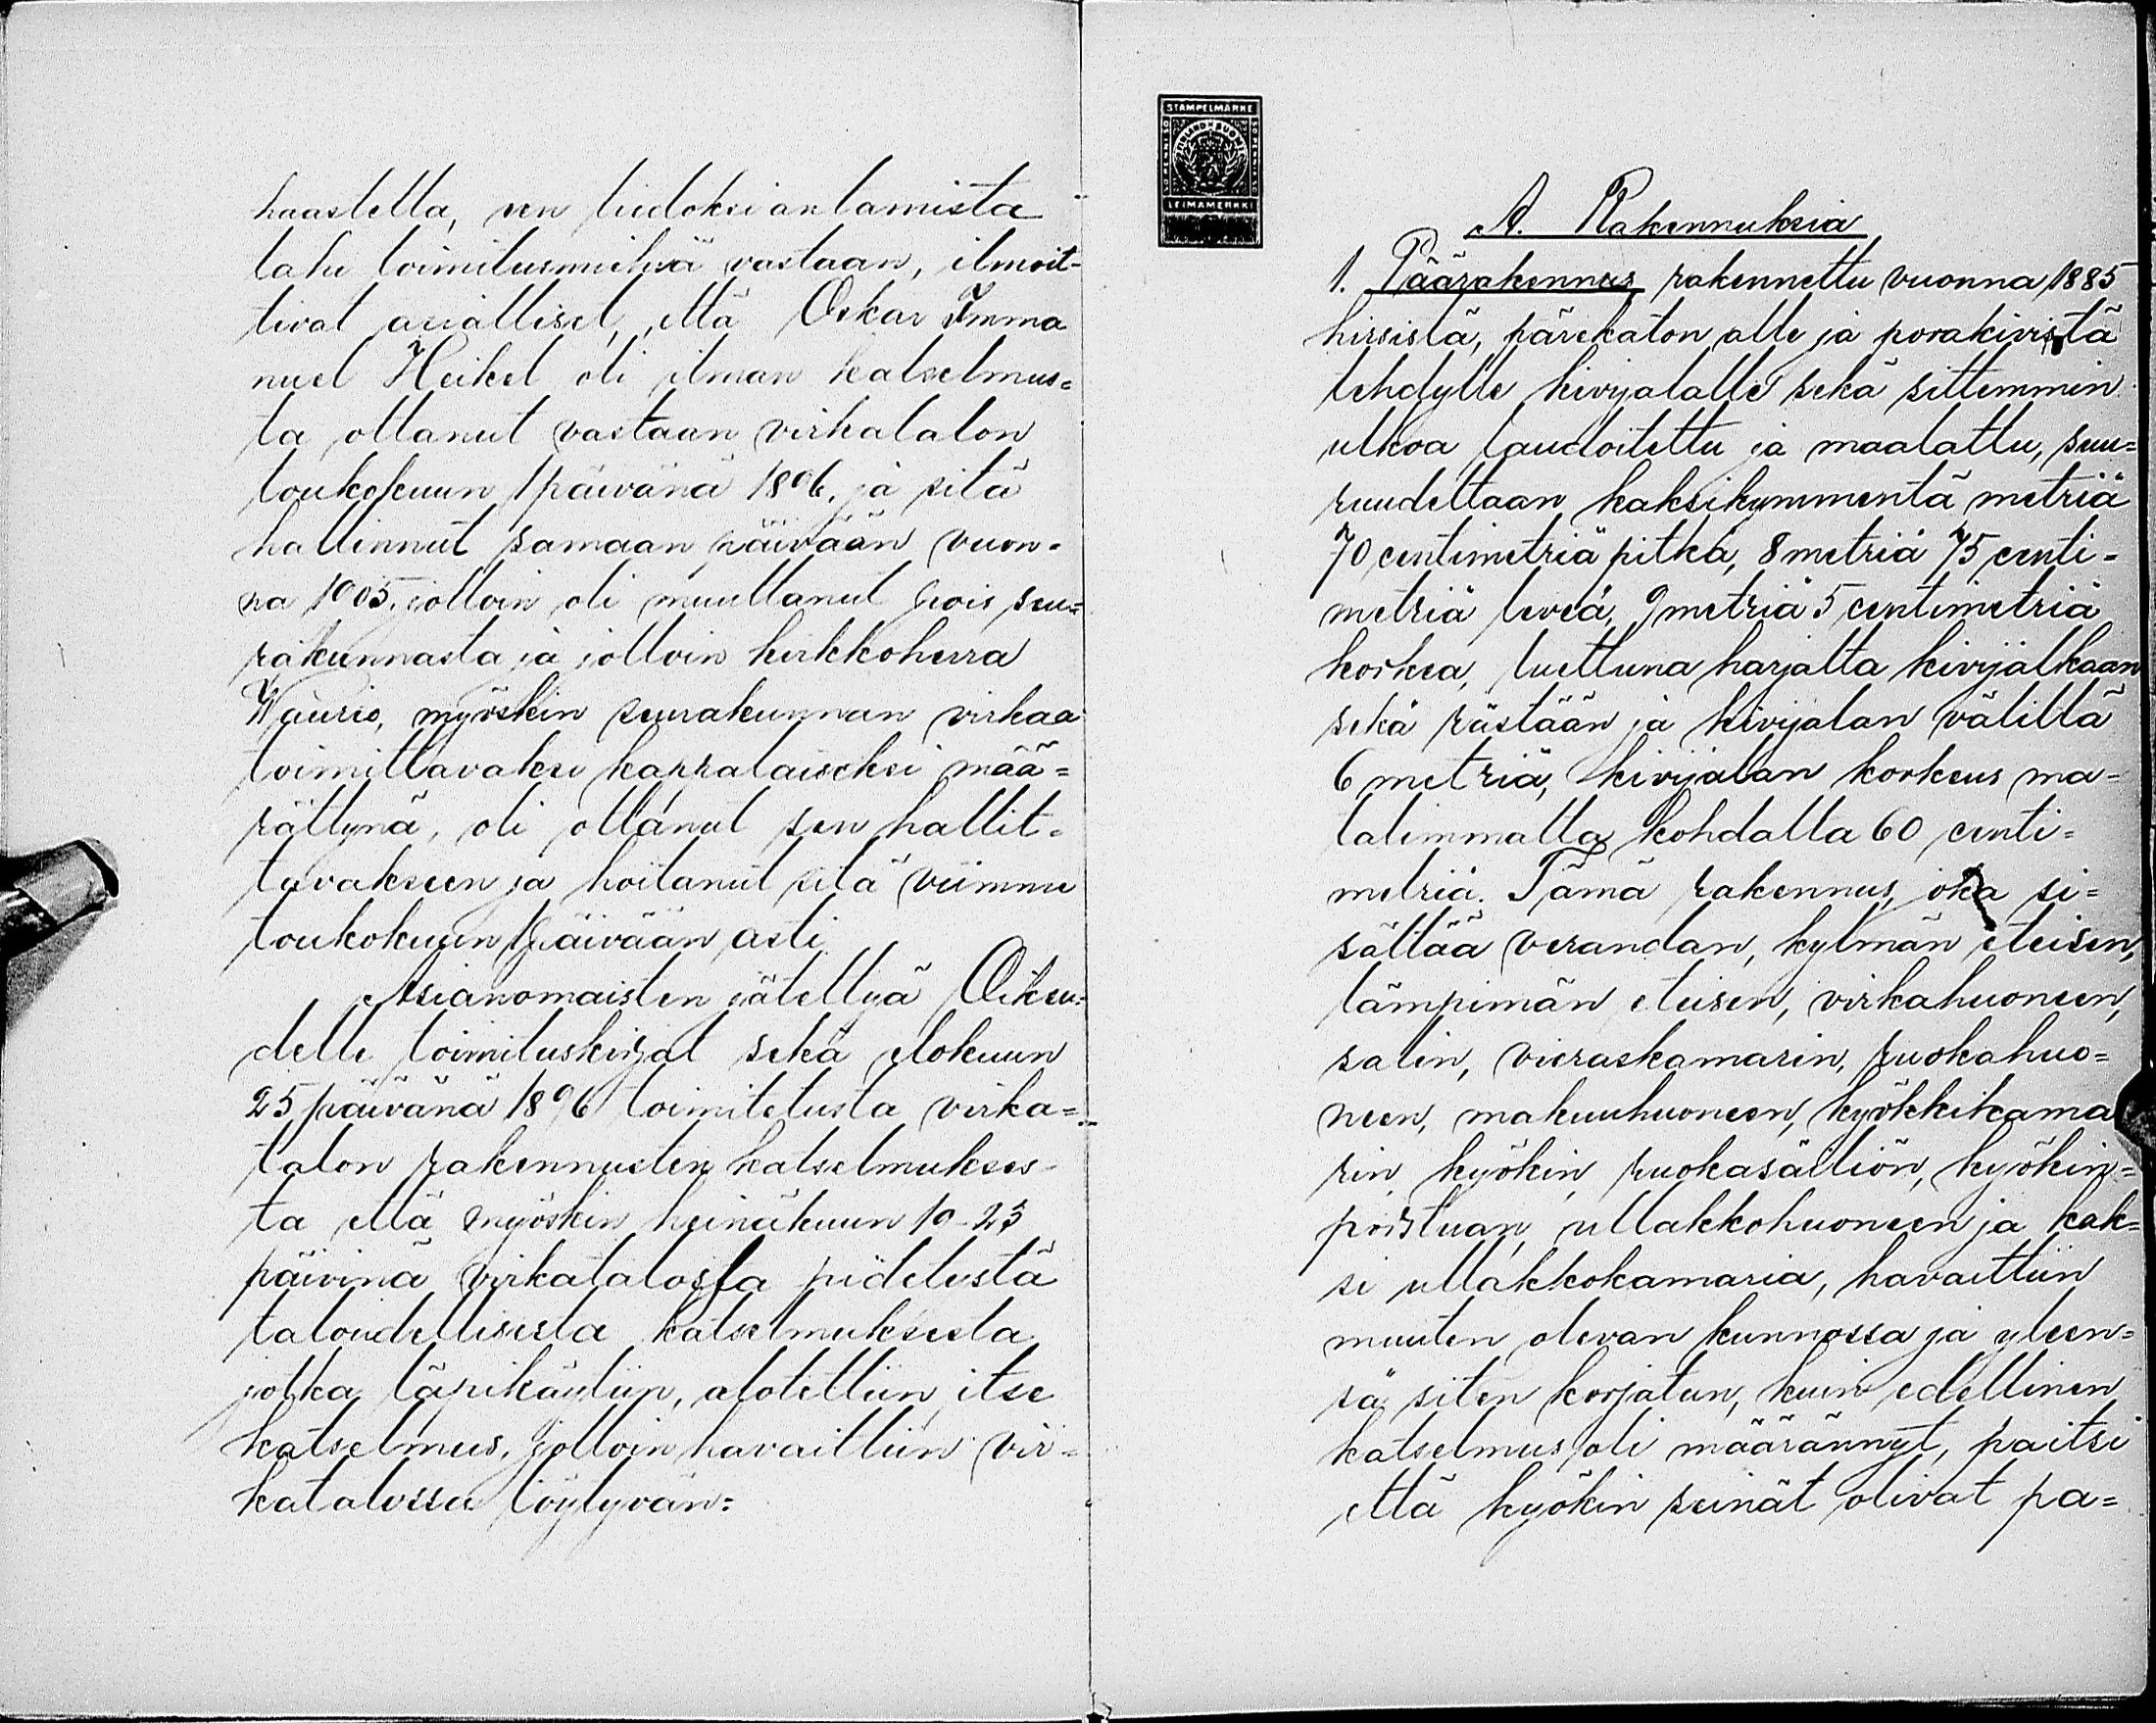 haastella, sen tiedoksiantamista
tahi toimitusmiehiä vastaan, ilmoit-
tivat asialliset, että Oskar Imma
nuel Heikel oli ilman katselmus=
ta ottanut vastaan virkatalon
toukokuun 1 päivänä 1896, ja sitä
hallinnut samaan päivään vuon=
na 1905, jolloin oli muuttanut pois seu=
rakunnasta ja jolloin kirkkoherra
Waurio, myöskin seurakunnan virkaa
toimittavaksi kappalaiseksi mää=
rättynä, oli ottanut sen hallit=
tavakseen ja hoitanut sitä viimme
toukokuun 1 päivään asti
Asianomaisten jätettyä Oikeu=
delle toimituskirjat sekä elokuun
25 päivänä 1896 toimitetusta virka=
talon rakennusten katselmukses-
ta että myöskin heinäkuun 19-23
päivinä virkatalossa pidetystä
taloudellisesta katselmuksesta
jotka läpikäytiin, alotettiin itse
katselmus, jolloin havaittiin vir=
katalossa löytyvän:
STAMPELMARKE
FINLAND SUOMI
LEIMAMERKKI
A. Rakennuksia
1. Päärakennus rakennettu vuonna 1885
hirsistä, pärekaton alle ja porakivistä
tehdylle kivijalalle sekä sittemmin
ulkoa laudoitettu ja maalattu, suu=
ruudeltaan kaksikymmentä metriä
70 centimetriä pitkä, 8 metriä 75 centi=
metriä leveä, 9 metriä 5 centimetriä
korkea, luettuna harjalta kivijalkaan
sekä rästään ja kivijalan väliltä
6 metriä, kivijalan korkeus ma-
talimmalta kohdalta 60 centi=
metriä. Tämä rakennus, joka si=
sältää verandan, kylmän eteisen,
lämpimän eteisen, virkahuoneen,
salin, vieraskamarin, ruokahuo=
neen, makuuhuoneen, kyökkikama
rin, kyökin, ruokasäiliön, kyökin=
porstuan, ullakkohuoneen ja kak=
si ullakkokamaria, havaittiin
muuten olevan kunnossa ja yleen=
sä siten korjatun, kuin edellinen
katselmus oli määrännyt, paitsi
että kyökin seinät olivat pa=